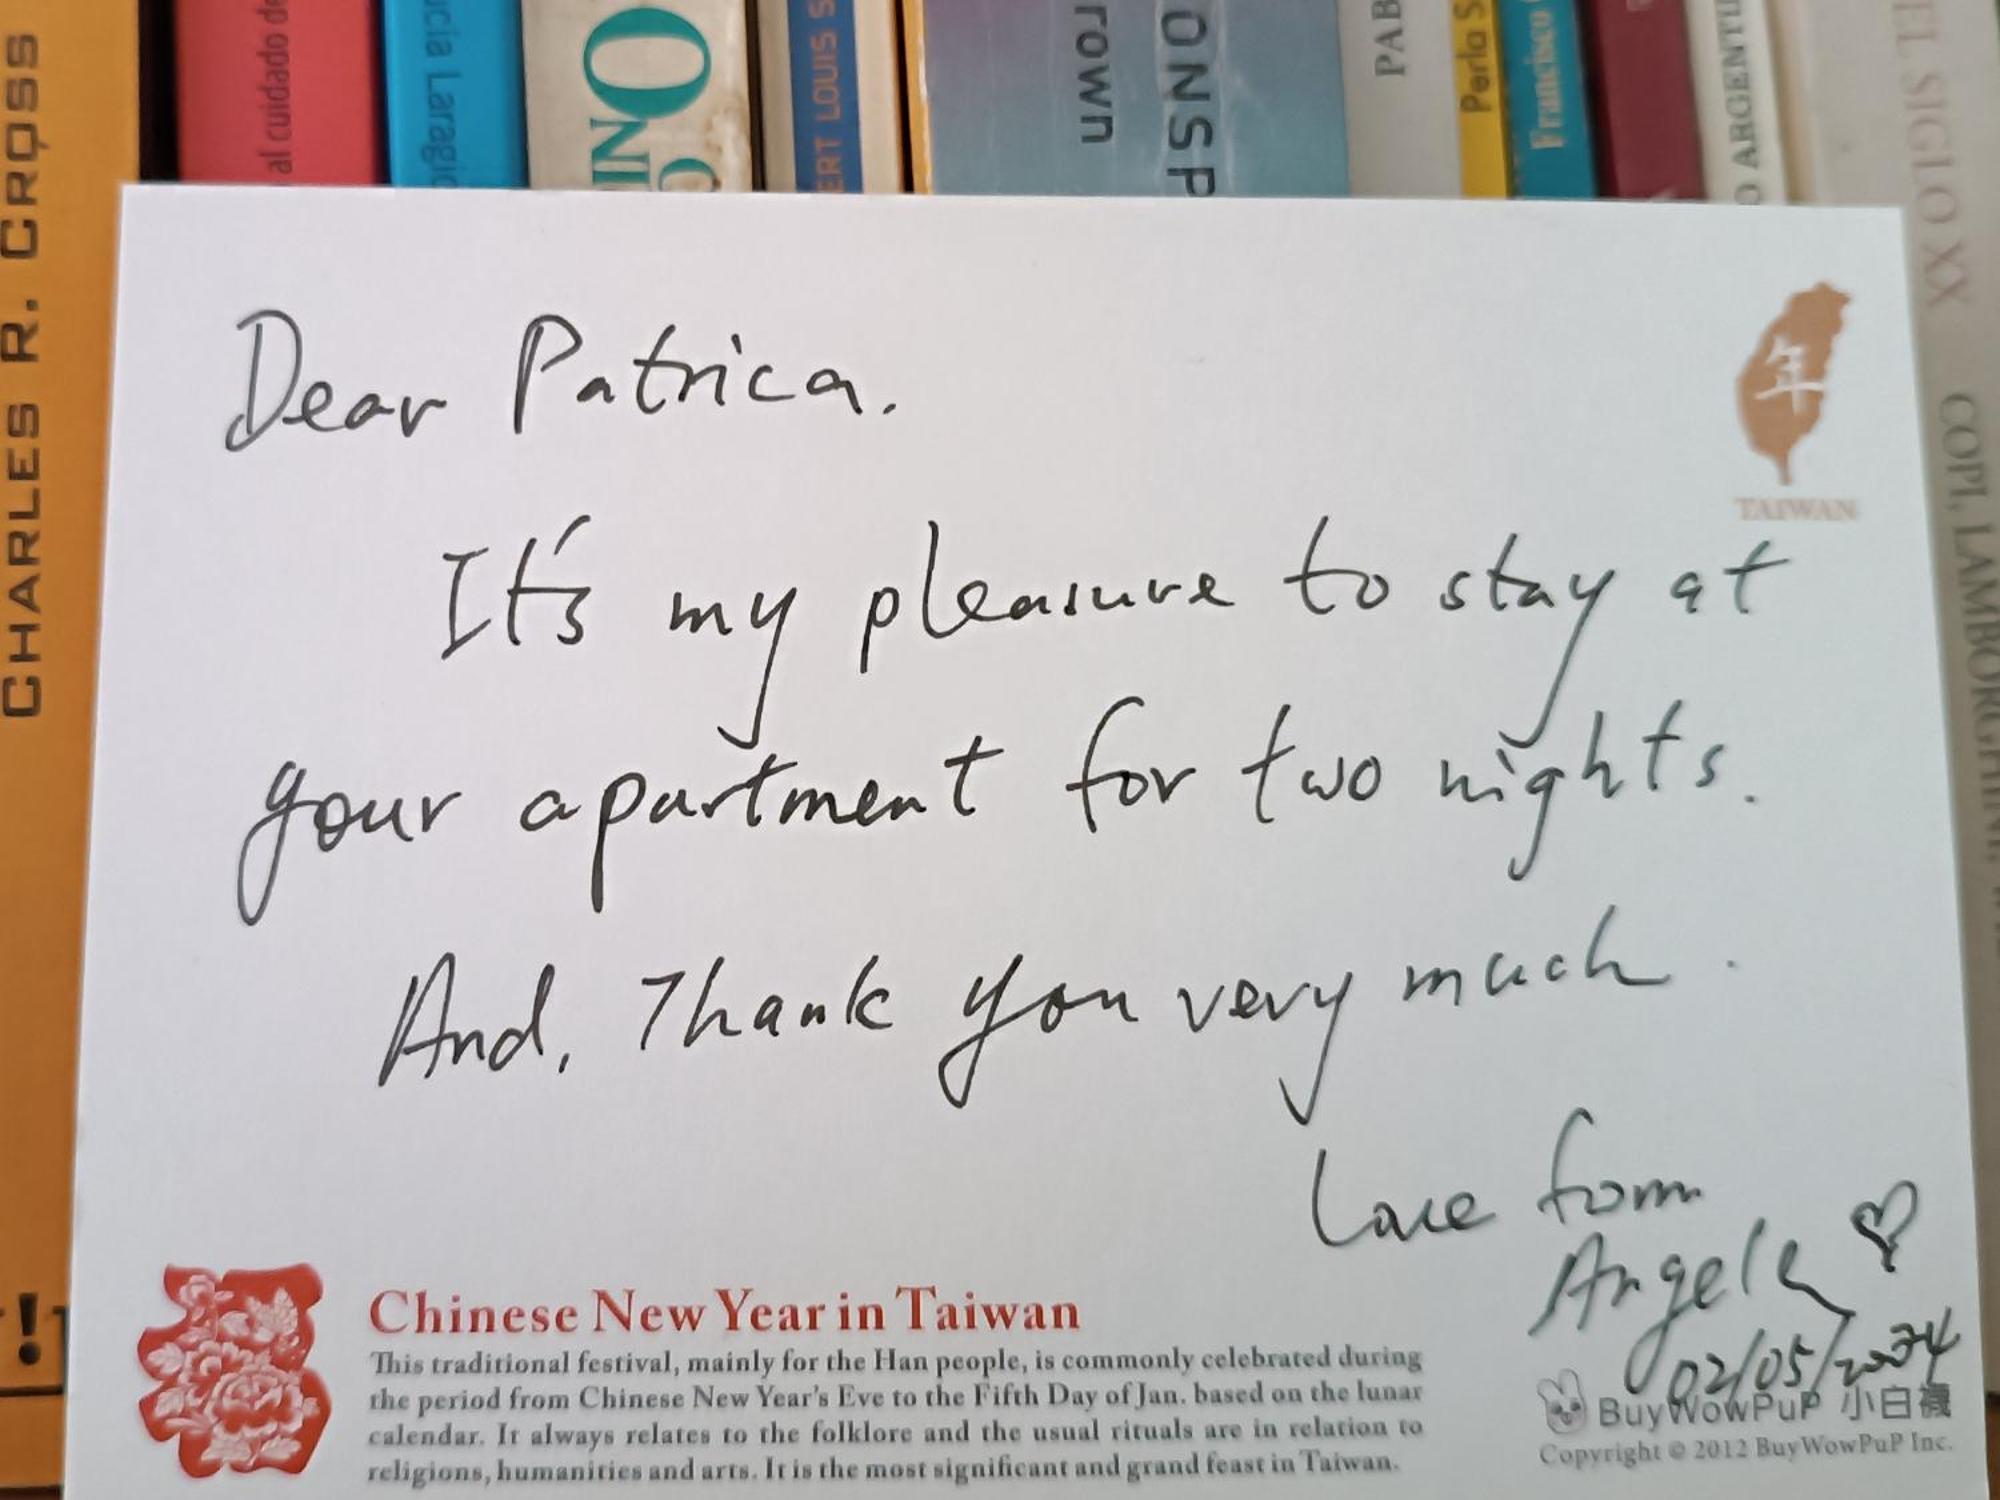 CHARLES R. CROSS
al cuidado de
ucia Laragio
INO
ERT LOUIS S
rown
ONSP
PAB
Perla S
Francisco
O ARGENTI
EL SIGLO XX
COPI, LAMBORGHINI,
Dear Patrica.
年
TAIWAN
It's my pleasure to stay at
your apartment for two nights.
And, Thank you very much.
Love from
Angela ♡
02/05/2024
Chinese New Year in Taiwan
This traditional festival, mainly for the Han people, is commonly celebrated during
the period from Chinese New Year's Eve to the Fifth Day of Jan. based on the lunar
calendar. It always relates to the folklore and the usual rituals are in relation to
religions, humanities and arts. It is the most significant and grand feast in Taiwan.
BuyWowPuP 小白襪
Copyright © 2012 BuyWowPuP Inc.